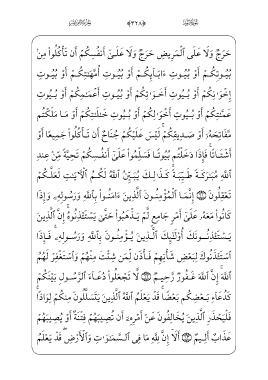 ﴿٣٢٨﴾
حَرَجٌ وَلَا عَلَى ٱلْمَرِيضِ حَرَجٌ وَلَا عَلَىٰٓ أَنفُسِكُمْ أَن تَأْكُلُوا۟ مِنۢ
بُيُوتِكُمْ أَوْ بُيُوتِ ءَابَآئِكُمْ أَوْ بُيُوتِ أُمَّهَٰتِكُمْ أَوْ بُيُوتِ
إِخْوَٰنِكُمْ أَوْ بُيُوتِ أَخَوَٰتِكُمْ أَوْ بُيُوتِ أَعْمَٰمِكُمْ أَوْ بُيُوتِ
عَمَّٰتِكُمْ أَوْ بُيُوتِ أَخْوَٰلِكُمْ أَوْ بُيُوتِ خَٰلَٰتِكُمْ أَوْ مَا مَلَكْتُم
مَّفَاتِحَهُۥٓ أَوْ صَدِيقِكُمْ ۚ لَيْسَ عَلَيْكُمْ جُنَاحٌ أَن تَأْكُلُوا۟ جَمِيعًا أَوْ
أَشْتَاتًا ۚ فَإِذَا دَخَلْتُم بُيُوتًا فَسَلِّمُوا۟ عَلَىٰٓ أَنفُسِكُمْ تَحِيَّةً مِّنْ عِندِ
ٱللَّهِ مُبَٰرَكَةً طَيِّبَةً ۚ كَذَٰلِكَ يُبَيِّنُ ٱللَّهُ لَكُمُ ٱلْءَايَٰتِ لَعَلَّكُمْ
تَعْقِلُونَ ﴿٦١﴾ إِنَّمَا ٱلْمُؤْمِنُونَ ٱلَّذِينَ ءَامَنُوا۟ بِٱللَّهِ وَرَسُولِهِۦ وَإِذَا
كَانُوا۟ مَعَهُۥ عَلَىٰٓ أَمْرٍ جَامِعٍ لَّمْ يَذْهَبُوا۟ حَتَّىٰ يَسْتَـْٔذِنُوهُ ۚ إِنَّ ٱلَّذِينَ
يَسْتَـْٔذِنُونَكَ أُو۟لَٰٓئِكَ ٱلَّذِينَ يُؤْمِنُونَ بِٱللَّهِ وَرَسُولِهِۦ ۚ فَإِذَا
ٱسْتَـْٔذَنُوكَ لِبَعْضِ شَأْنِهِمْ فَأْذَن لِّمَن شِئْتَ مِنْهُمْ وَٱسْتَغْفِرْ لَهُمُ
ٱللَّهَ ۚ إِنَّ ٱللَّهَ غَفُورٌ رَّحِيمٌ ﴿٦٢﴾ لَّا تَجْعَلُوا۟ دُعَآءَ ٱلرَّسُولِ بَيْنَكُمْ
كَدُعَآءِ بَعْضِكُم بَعْضًا ۚ قَدْ يَعْلَمُ ٱللَّهُ ٱلَّذِينَ يَتَسَلَّلُونَ مِنكُمْ لِوَاذًا ۚ
فَلْيَحْذَرِ ٱلَّذِينَ يُخَالِفُونَ عَنْ أَمْرِهِۦٓ أَن تُصِيبَهُمْ فِتْنَةٌ أَوْ يُصِيبَهُمْ
عَذَابٌ أَلِيمٌ ﴿٦٣﴾ أَلَآ إِنَّ لِلَّهِ مَا فِى ٱلسَّمَٰوَٰتِ وَٱلْأَرْضِ ۖ قَدْ يَعْلَمُ